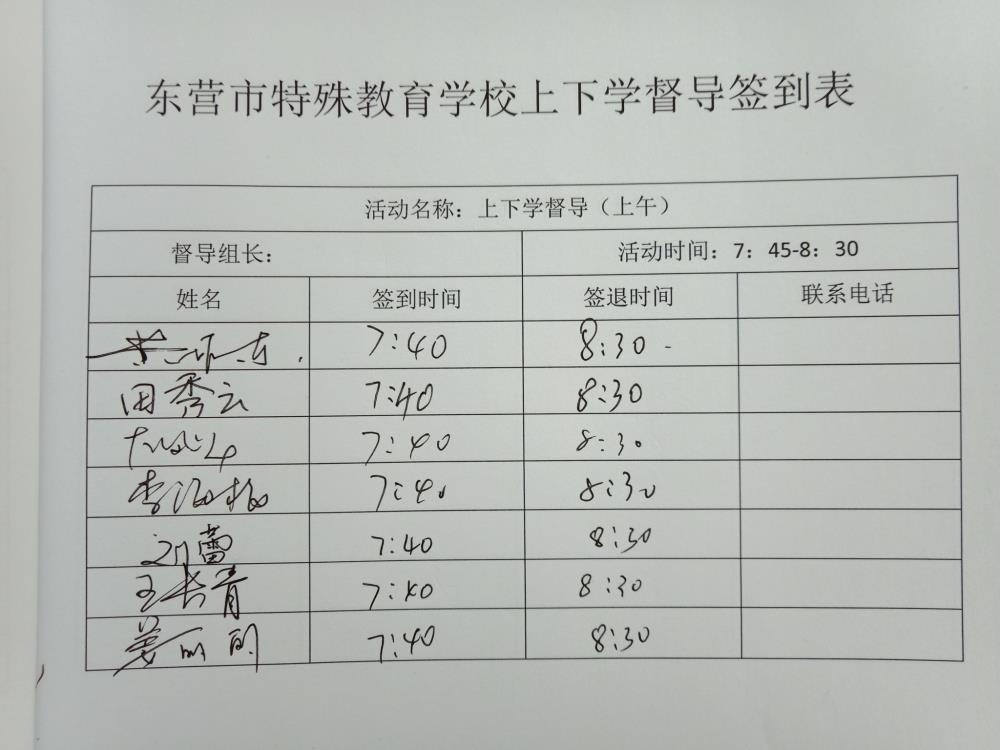 东营市特殊教育学校上下学督导签到表
活动名称：上下学督导（上午）
督导组长： 活动时间：7：45-8：30
姓名 签到时间 签退时间 联系电话
7:40 8:30
田秀云 7:40 8:30
7:40 8:30
李 梅 7:40 8:30
刘蕾 7:40 8:30
王长青 7:40 8:30
姜丽丽 7:40 8:30